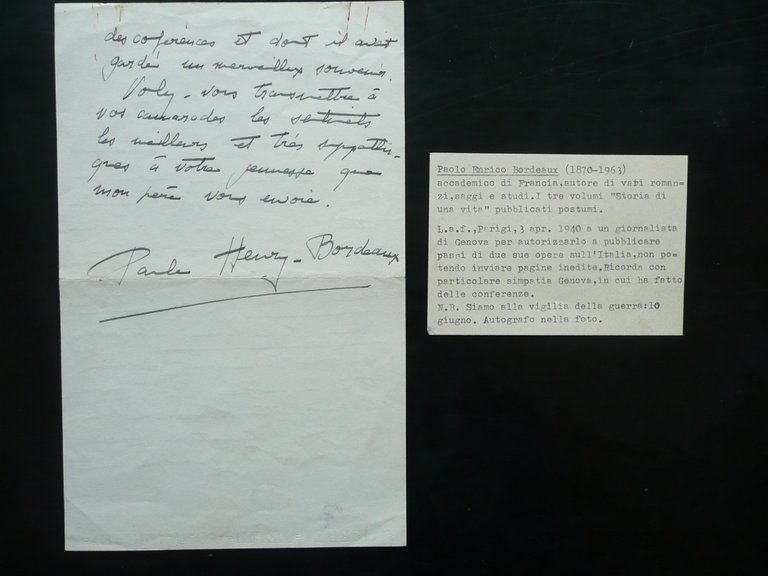 des coférences et dont il avait
gardé un merveilleux souvenir.
vous transmettre à
vos camarades les
les meilleurs et très sympathi-
ques à votre jeunesse que
mon père vous envoie.
Paule Henry-Bordeaux
Paolo Enrico Bordeaux (1870-1963)
accademico di Francia,autore di vari roman=
zi,saggi e studi.I tre volumi "Storia di
una vita" pubblicati postumi.
L.a.f.,Parigi,3 apr. 1940 a un giornalista
di Genova per autorizzarlo a pubblicare
passi di due sue opere sull'Italia,non po=
tendo inviare pagine inedite.Ricorda con
particolare simpatia Genova,in cui ha fatto
delle conferenze.
N.B. Siamo alla vigilia della guerra:10
giugno. Autografo nella foto.